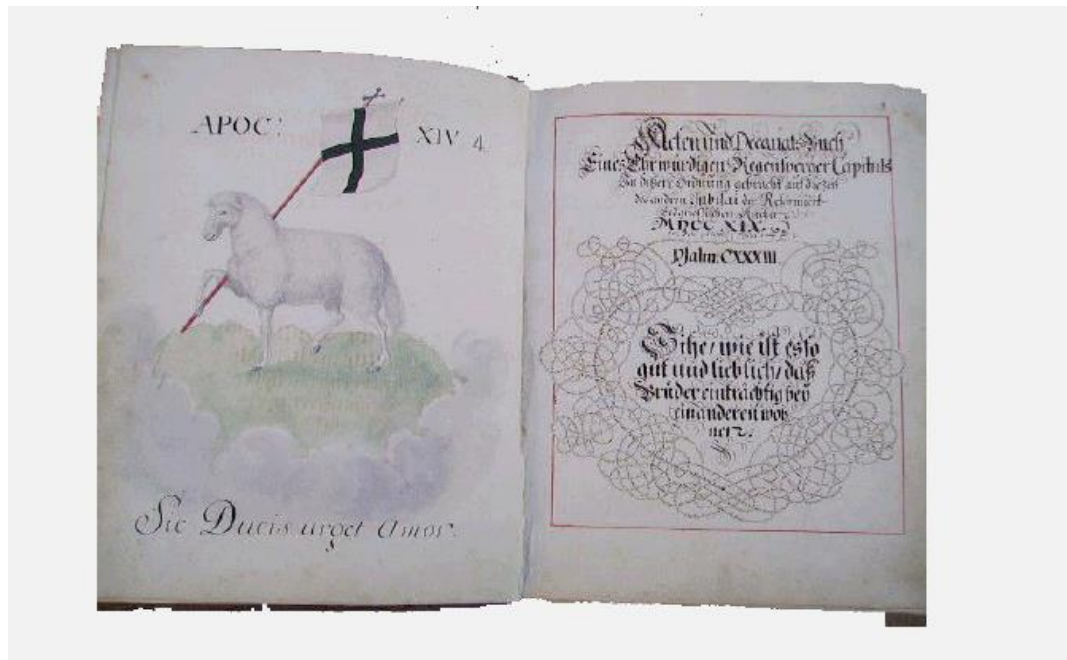 APOC: XIV 4.
Sic Ducis urget Amor.
Acten und Decanats-Buch
Eines Ehrwürdigen Regensperger Capituls
In dißere Ordnung gebracht auf die Zeit
des andern Jubilæi der Reformiert-
MDCC XIX.
Psalm. CXXXIII
Sihe / wie ist es so
gut und lieblich / daß
Brüder einträchtig beÿ
einanderen woh
nen.